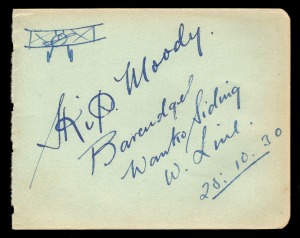 Moody.
Barendge
Wantso Siding
W. Line.
28.10.30